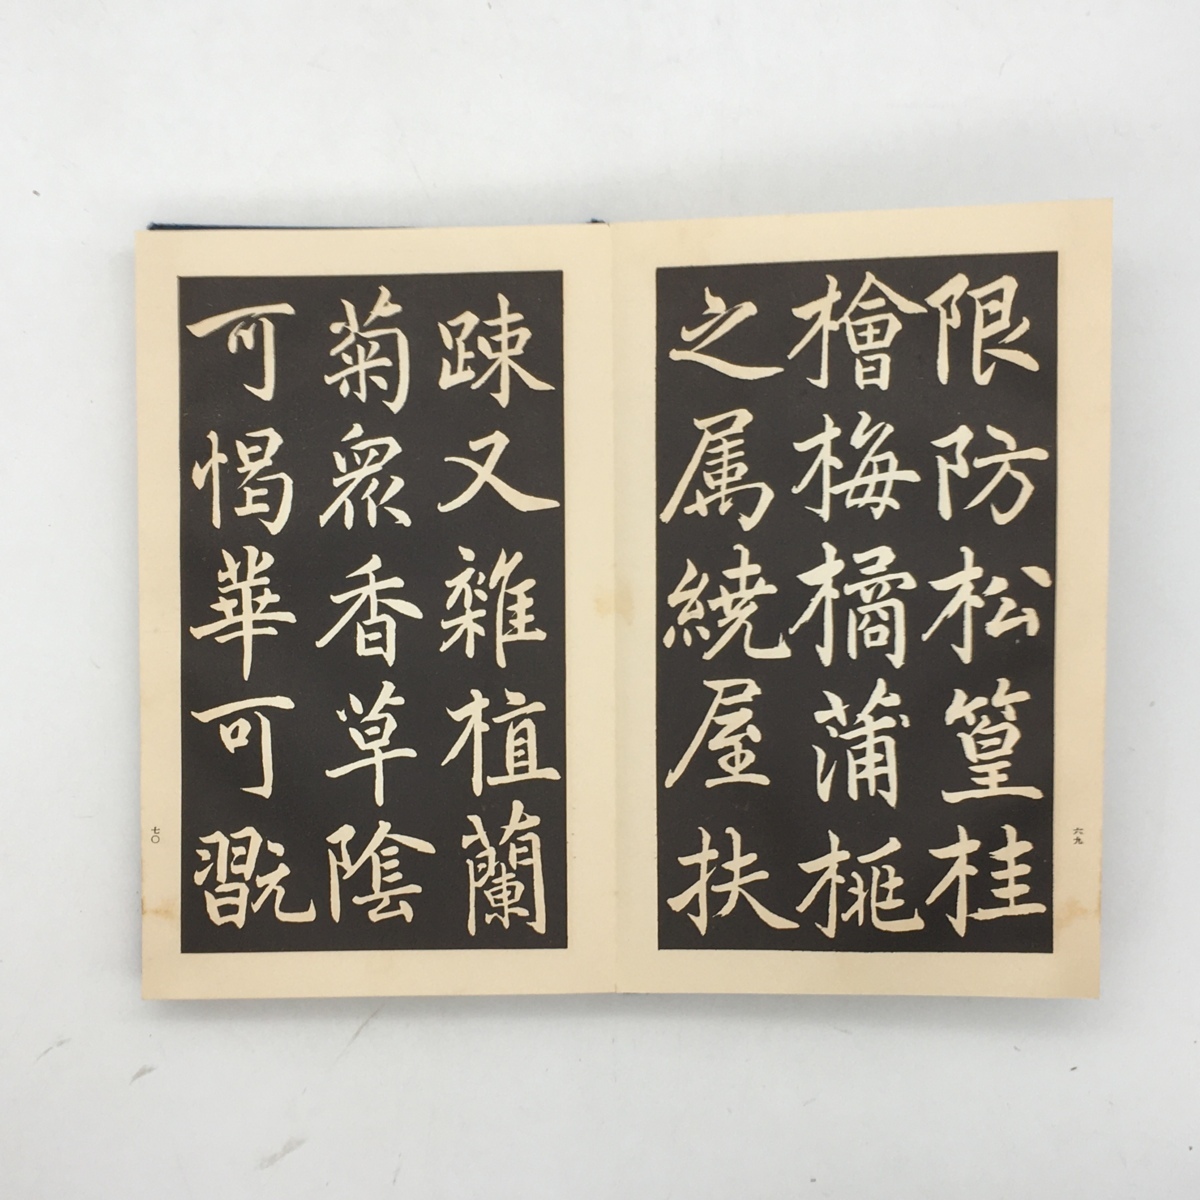 限防松篁桂
檜梅橘蒲桃
之属繞屋扶
六九
踈又雜植蘭
菊眾香草陰
可愒華可翫
七〇